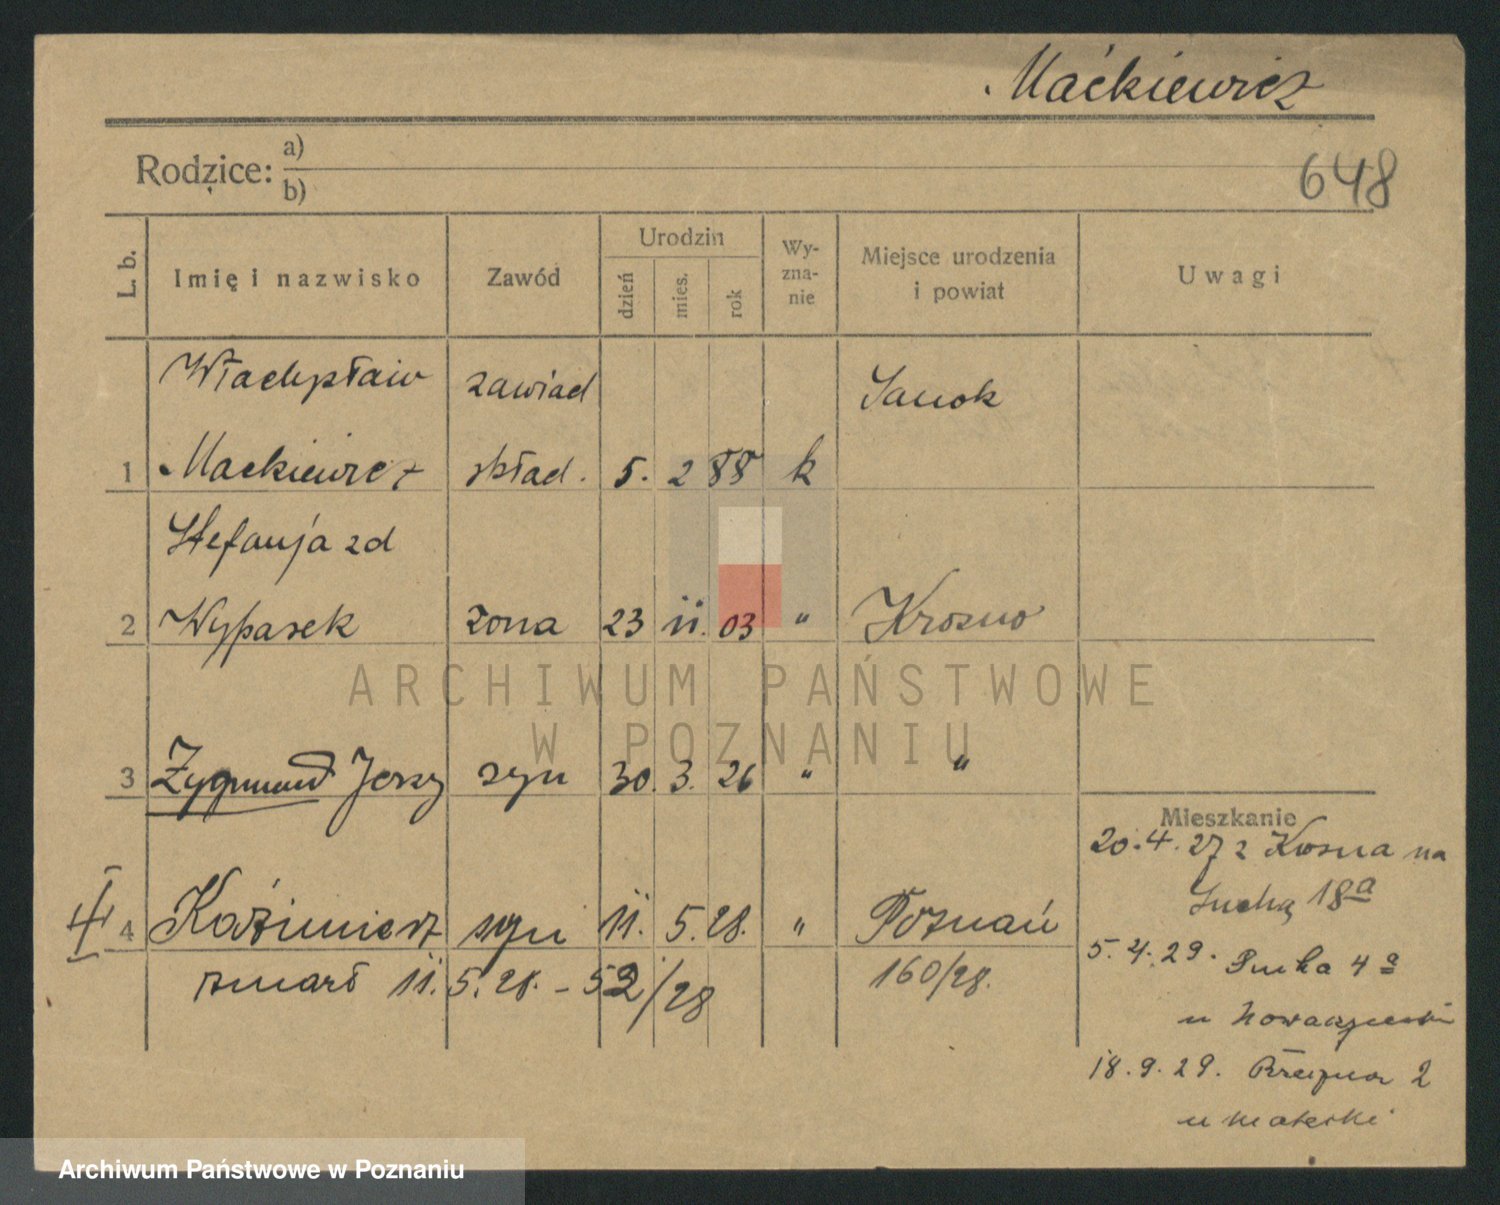 Maćkiewicz
Rodzice: a)
b)
648
L. b.
Imię i nazwisko
Zawód
Urodzin
dzień
mies.
rok
Wy-
zna-
nie
Miejsce urodzenia
i powiat
Uwagi
Władysław zawiad Sanok
1 Maćkiewicz skład. 5. 2 88 k
Stefanja zd
2 Wypasek żona 23 11. 03 " Krosno
3 Zygmund Jerzy syn 30. 3. 26 " "
4 Kaźimierz syn 11. 5. 28. " Poznań
zmarł 11. 5. 28. - 52/28 160/28.
Mieszkanie
20. 4. 27 z Krosna na
Suchą 18a
5. 4. 29. 4a
u
18. 9. 29. 2
u
ARCHIWUM PAŃSTWOWE
W POZNANIU
Archiwum Państwowe w Poznaniu